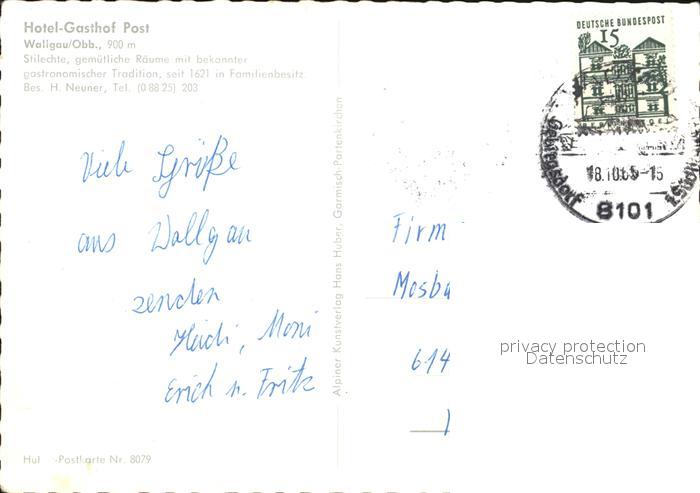 Hotel-Gasthof Post
Wallgau/Obb., 900 m
Stilechte, gemütliche Räume mit bekannter
gastronomischer Tradition, seit 1621 in Familienbesitz.
Bes. H. Neuner, Tel. (0 88 25) 203
Viele Grüße
aus Wallgau
senden
Heidi, Moni
Erich u. Fritz
Postkarte Nr. 8079
Alpiner Kunstverlag Hans Huber, Garmisch-Partenkirchen
DEUTSCHE BUNDESPOST
15
Gebirgsdorf
18.10.65-15
8101
Firm
Mosba
614
privacy protection
Datenschutz